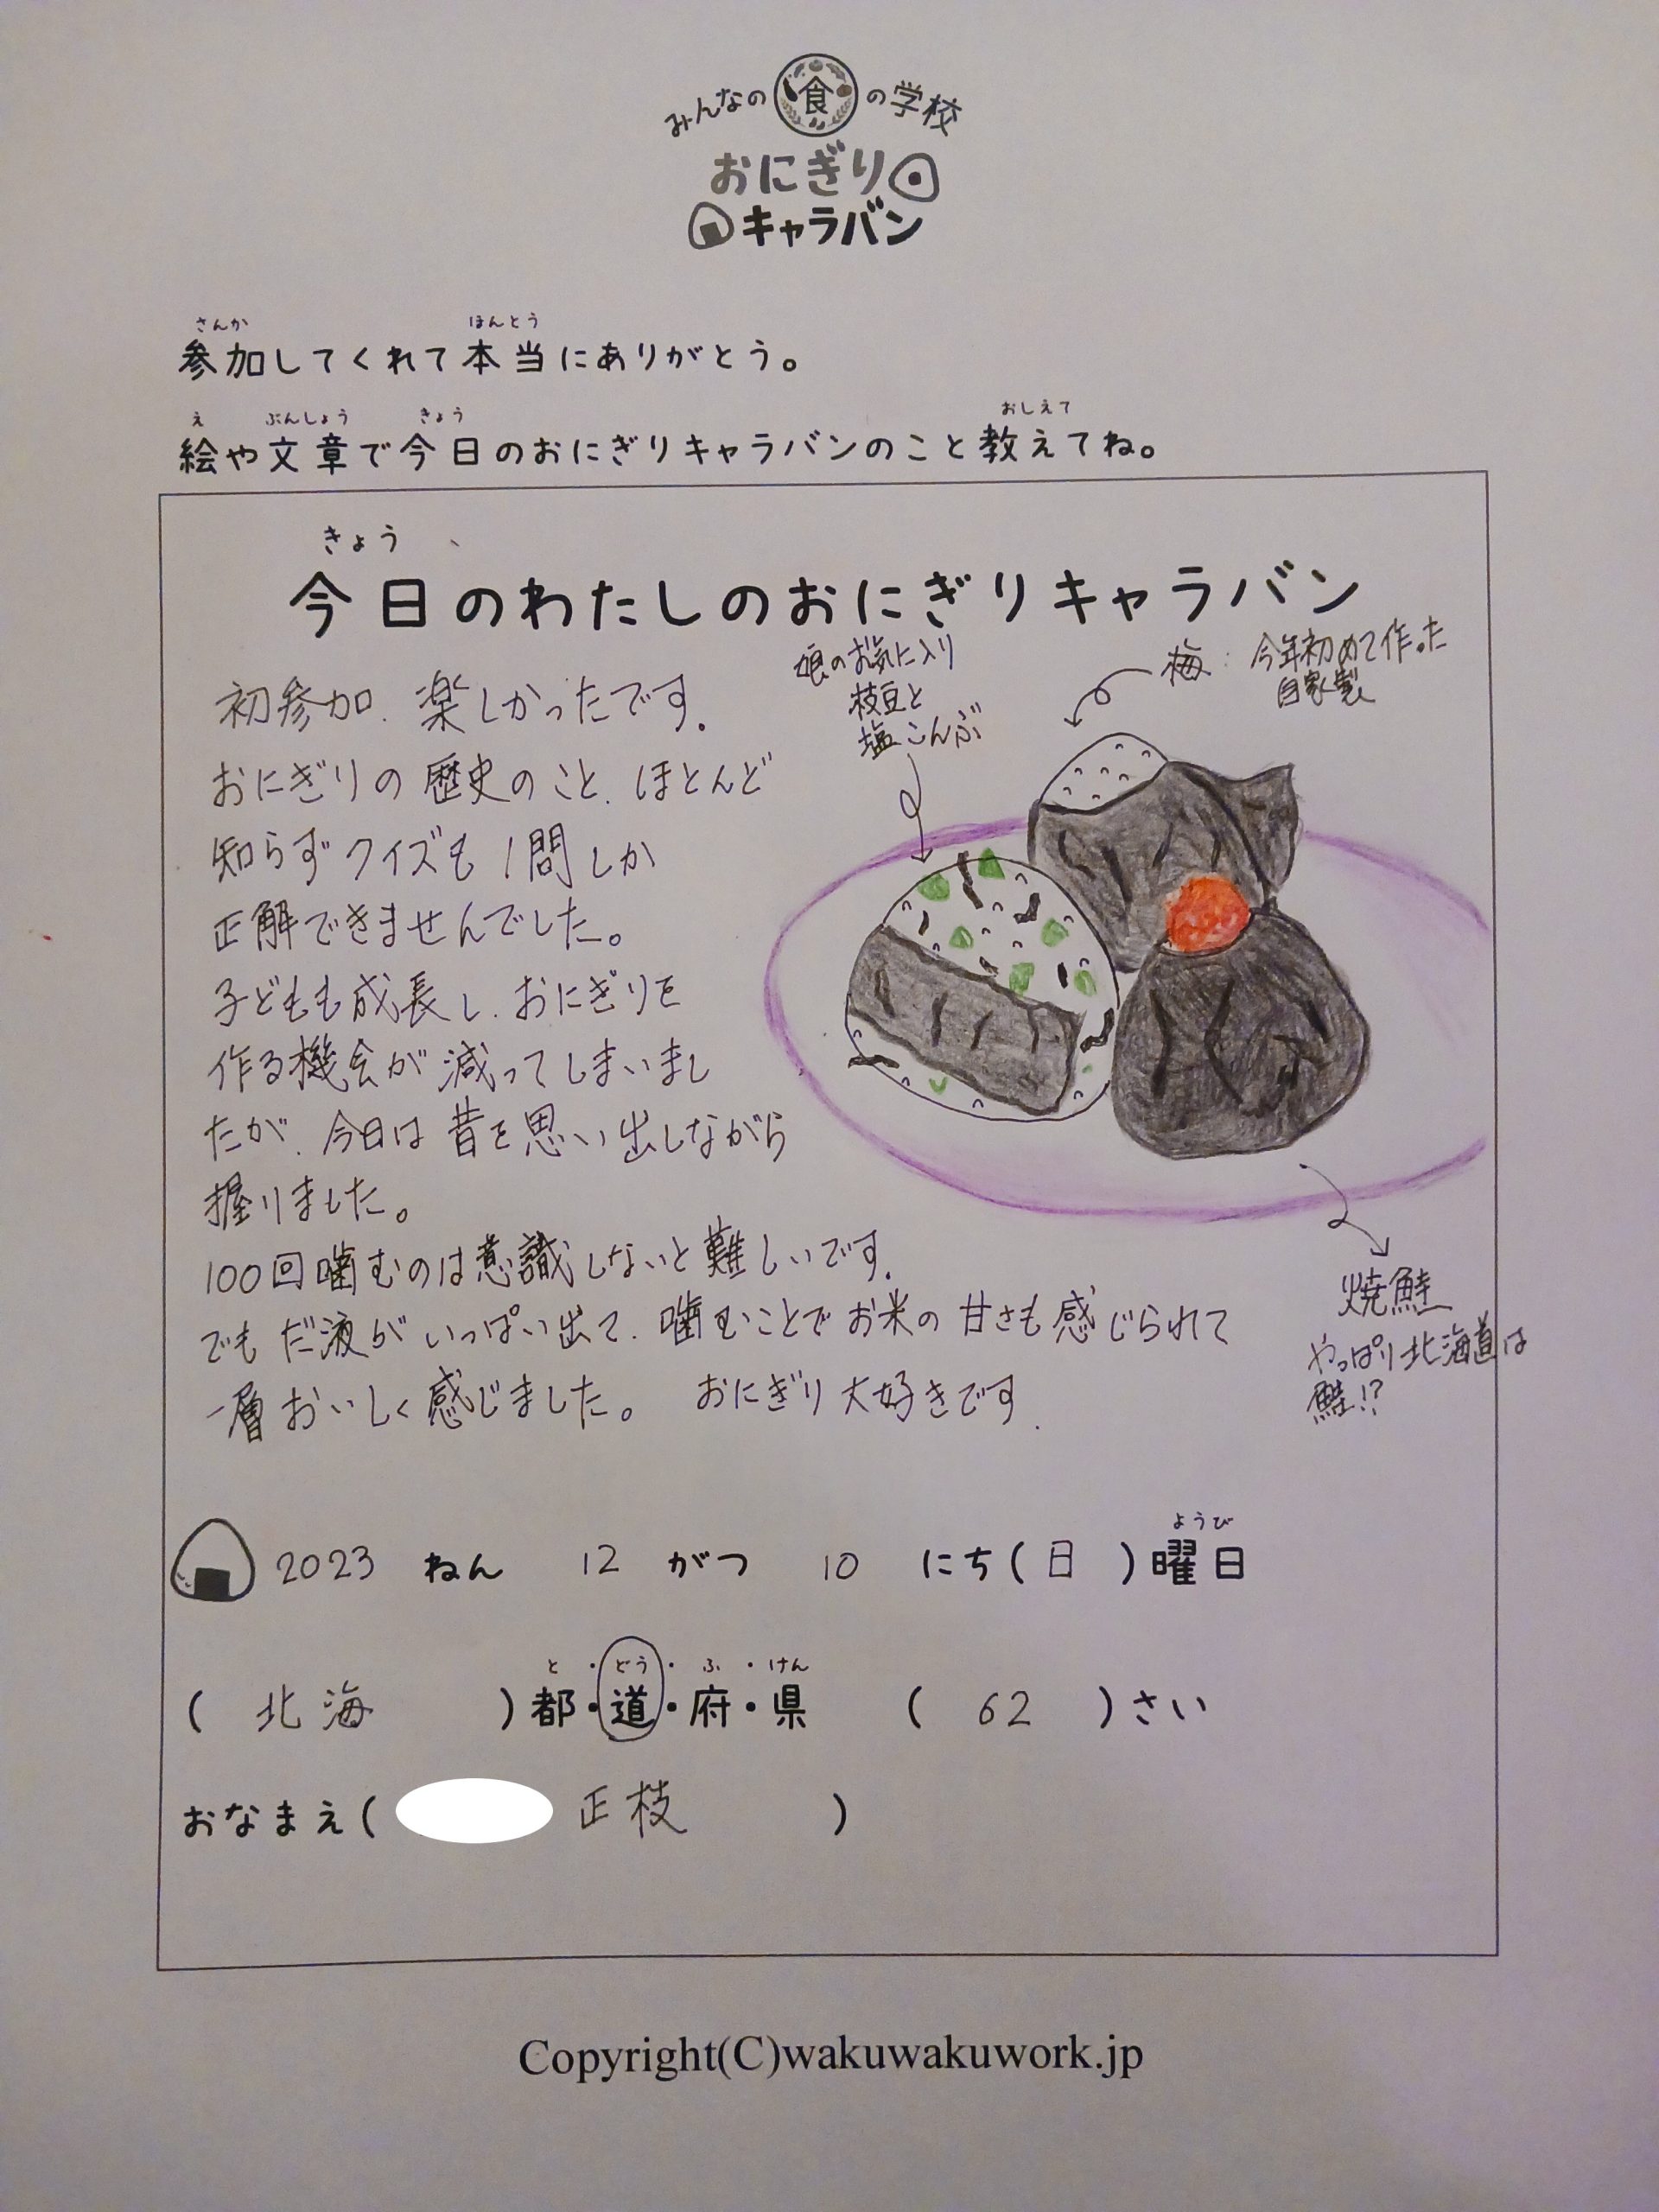 みんなの食の学校
おにぎり
キャラバン
さんか ほんとう
参加してくれて本当にありがとう。
え ぶんしょう きょう おしえて
絵や文章で今日のおにぎりキャラバンのこと教えてね。
きょう
今日のわたしのおにぎりキャラバン
初参加、楽しかったです。
おにぎりの歴史のこと、ほとんど
知らずクイズも1問しか
正解できませんでした。
子どもも成長し、おにぎりを
作る機会が減ってしまいまし
たが、今日は昔を思い出しながら
握りました。
100回噛むのは意識しないと難しいです。
でもだ液がいっぱい出て、噛むことでお米の甘さも感じられて
一層おいしく感じました。 おにぎり大好きです。
娘のお気に入り
枝豆と
塩こんぶ
梅:今年初めて作った
自家製
焼鮭
やっぱり北海道は
鮭!?
ようび
2023 ねん 12 がつ 10 にち(日)曜日
と・どう・ふ・けん
(北海)都・道・府・県 (62)さい
おなまえ( 正枝 )
Copyright(C)wakuwakuwork.jp